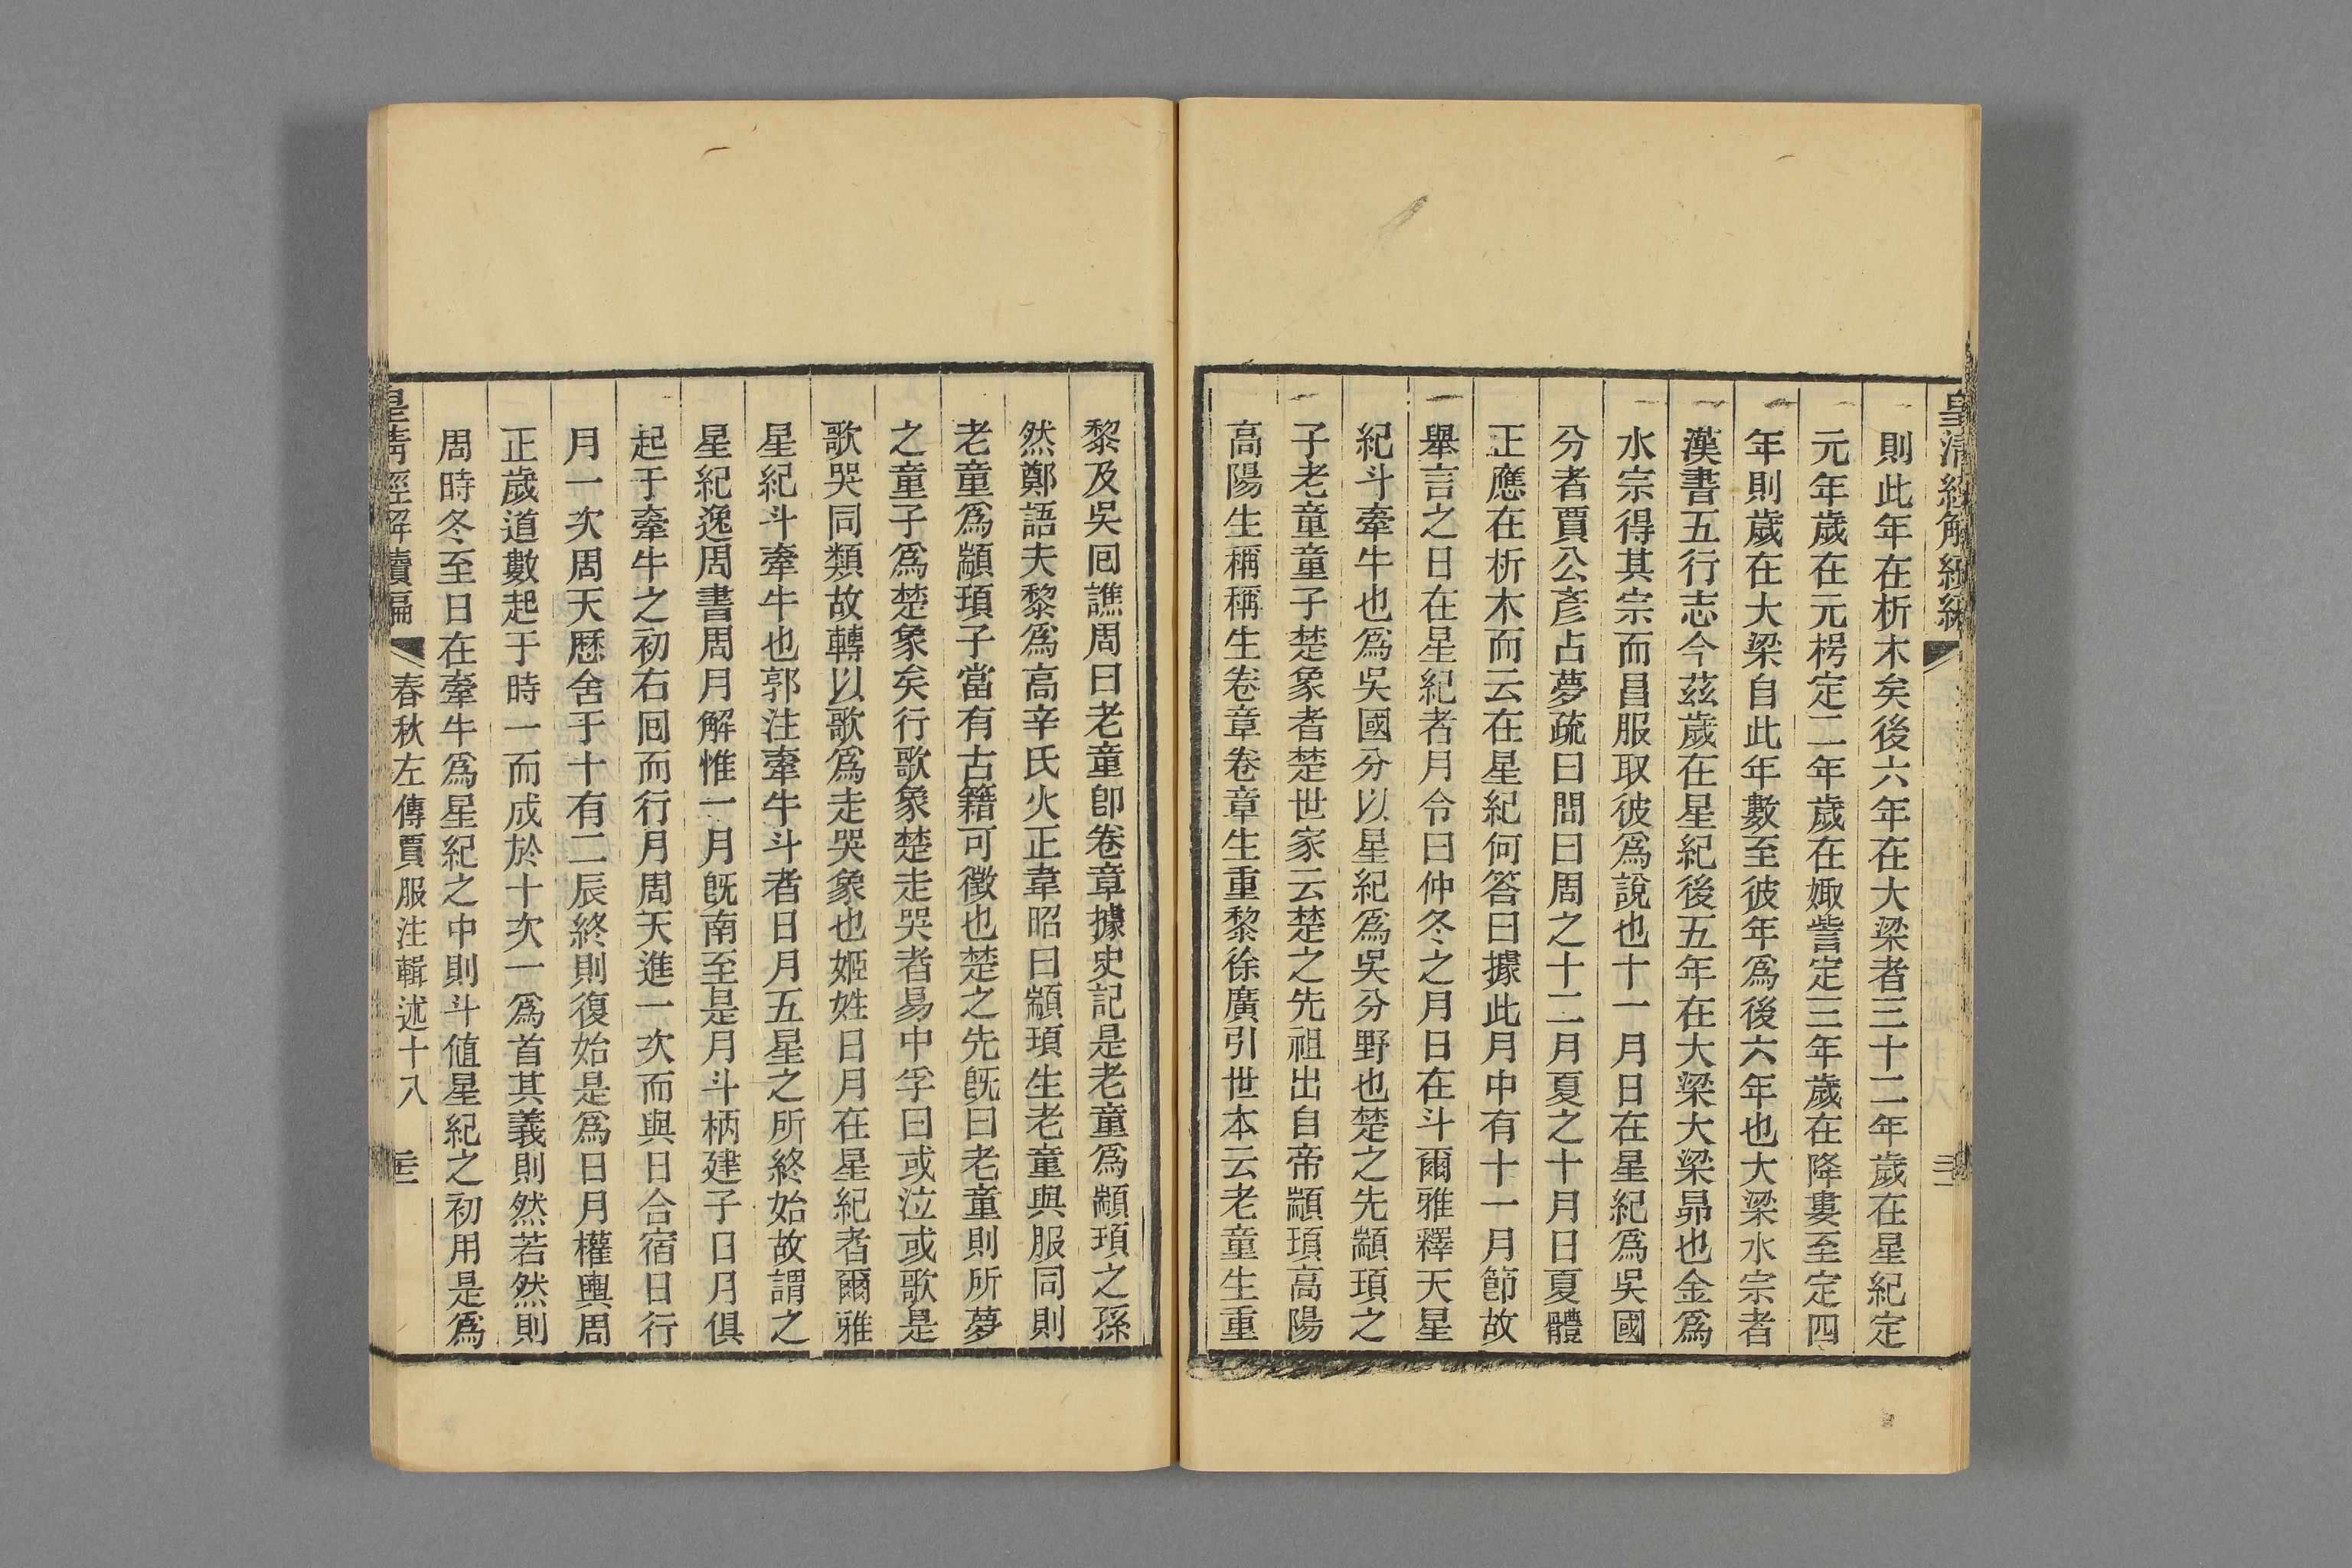 皇清經解續編
則此年在析木矣後六年在大梁者三十二年歲在星紀定
元年歲在元枵定二年歲在娵訾定三年歲在降婁至定四
年則歲在大梁自此年數至彼年爲後六年也大梁水宗者
漢書五行志今茲歲在星紀後五年在大梁大梁昴也金爲
水宗得其宗而昌服取彼爲說也十一月日在星紀爲吳國
分者賈公彥占夢疏曰問曰周之十二月夏之十月日夏體
正應在析木而云在星紀何答曰據此月中有十一月節故
舉言之日在星紀者月令曰仲冬之月日在斗爾雅釋天星
紀斗牽牛也爲吳國分以星紀爲吳分野也楚之先顓頊之
子老童童子楚象者楚世家云楚之先祖出自帝顓頊高陽
高陽生稱稱生卷章卷章生重黎徐廣引世本云老童生重
黎及吳回譙周曰老童卽卷章據史記是老童爲顓頊之孫
然鄭語夫黎爲高辛氏火正韋昭曰顓頊生老童與服同則
老童爲顓頊子當有古籍可徵也楚之先旣曰老童則所夢
之童子爲楚象矣行歌象楚走哭者易中孚曰或泣或歌是
歌哭同類故轉以歌爲走哭象也姬姓日月在星紀者爾雅
星紀斗牽牛也郭注牽牛斗者日月五星之所終始故謂之
星紀逸周書周月解惟一月旣南至是月斗柄建子日月俱
起于牽牛之初右回而行月周天進一次而與日合宿日行
月一次周天歷舍于十有二辰終則復始是爲日月權輿周
正歲道數起于時一而成於十次一爲首其義則然若然則
周時冬至日在牽牛爲星紀之中則斗值星紀之初用是爲
皇清經解續編
春秋左傳賈服注輯述十八